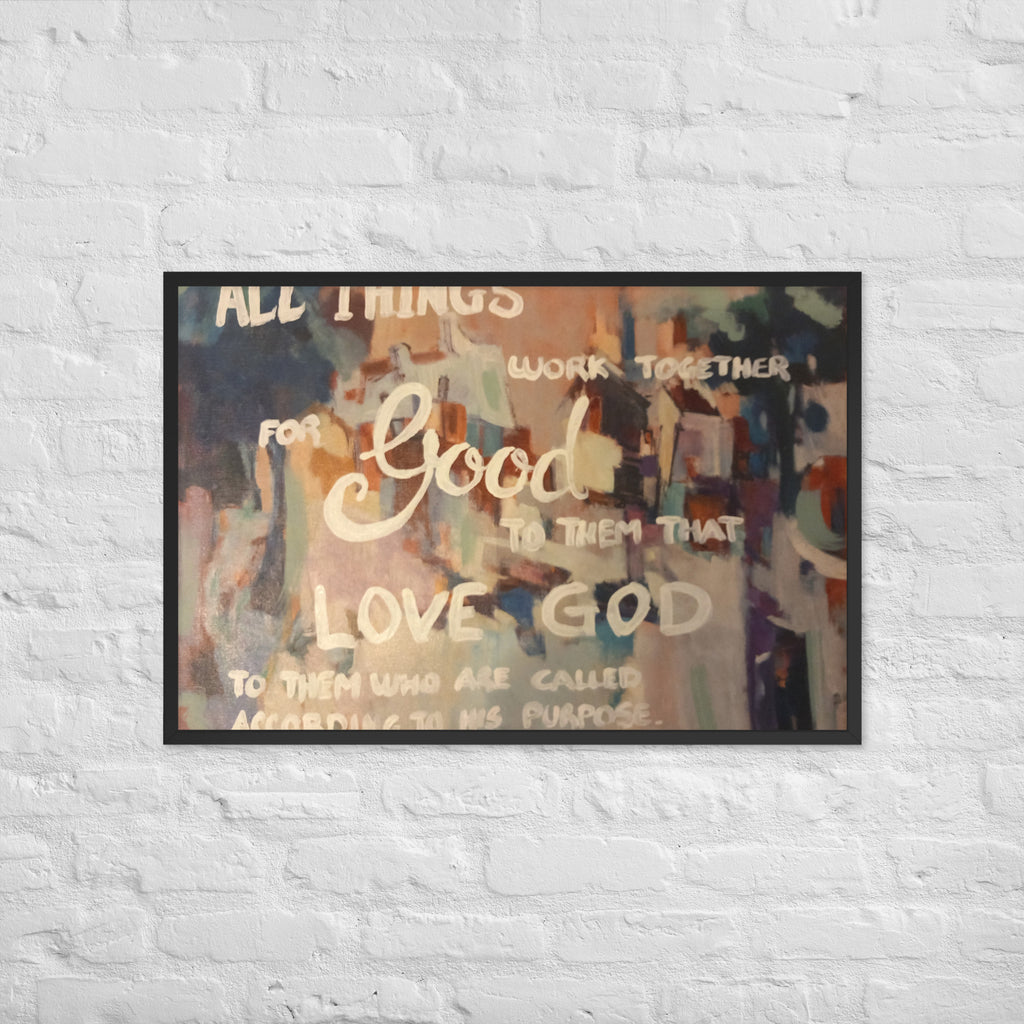 ALL THINGS
WORK TOGETHER
FOR Good
TO THEM THAT
LOVE GOD
TO THEM WHO ARE CALLED
ACCORDING TO HIS PURPOSE.